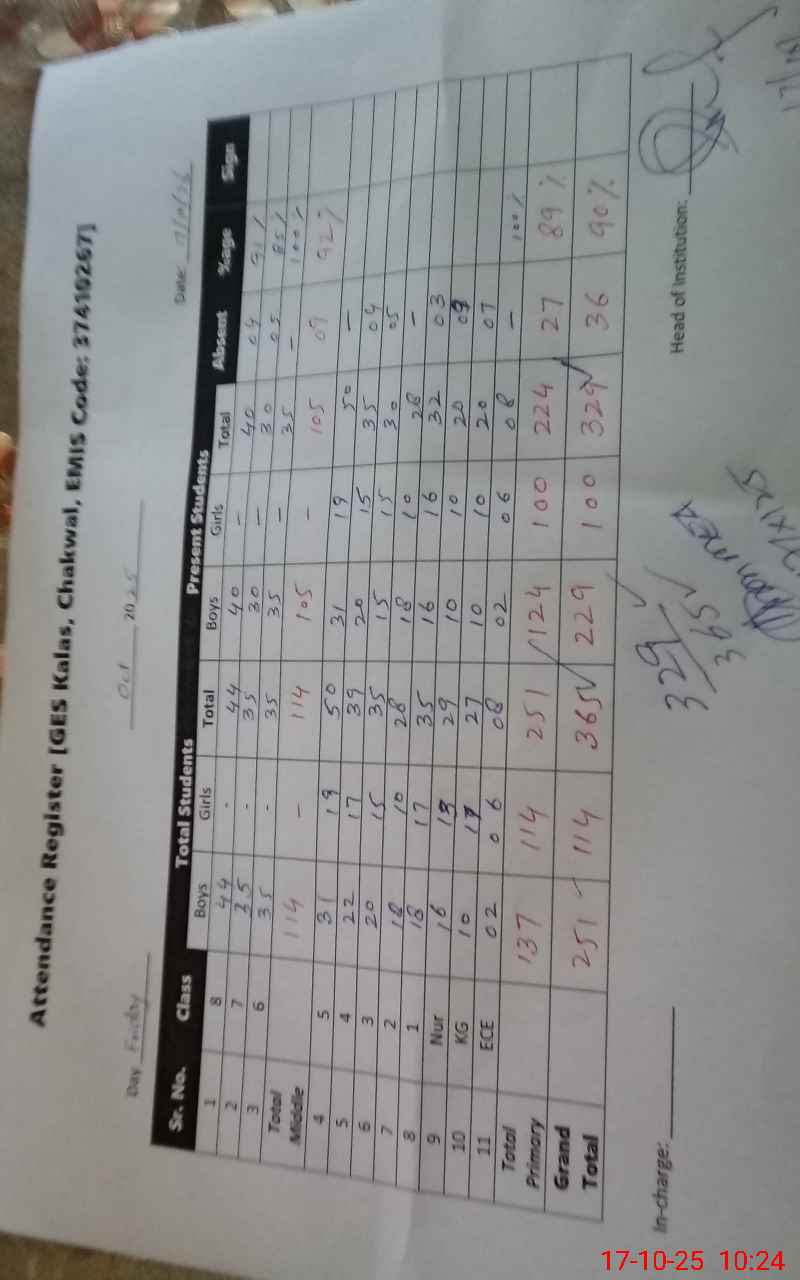 Attendance Register [GES Kalas, Chakwal, EMIS Code: 37410267]
Day Friday Oct 2025 Date:
Sr. No. Class Total Students Present Students Absent %age Sign
Boys Girls Total Boys Girls Total
1 8 44 - 44 40 - 40 04 91%
2 7 35 - 35 30 - 30 05 85%
3 6 35 - 35 35 - 35 - 100%
Total Middle 114 - 114 105 - 105 09 92%
4 5 31 19 50 31 19 50 -
5 4 22 17 39 20 15 35 04
6 3 20 15 35 15 15 30 05
7 2 18 10 28 18 10 28 -
8 1 18 17 35 16 16 32 03
9 Nur 16 29 10 10 20 09
10 KG 10 17 27 10 10 20 07
11 ECE 02 06 08 02 06 08 - 100%
Total Primary 137 114 251 124 100 224 27 89%
Grand Total 251 114 365 229 100 329 36 90%
In-charge: Head of Institution:
329
365
MEA
17-10-25 10:24